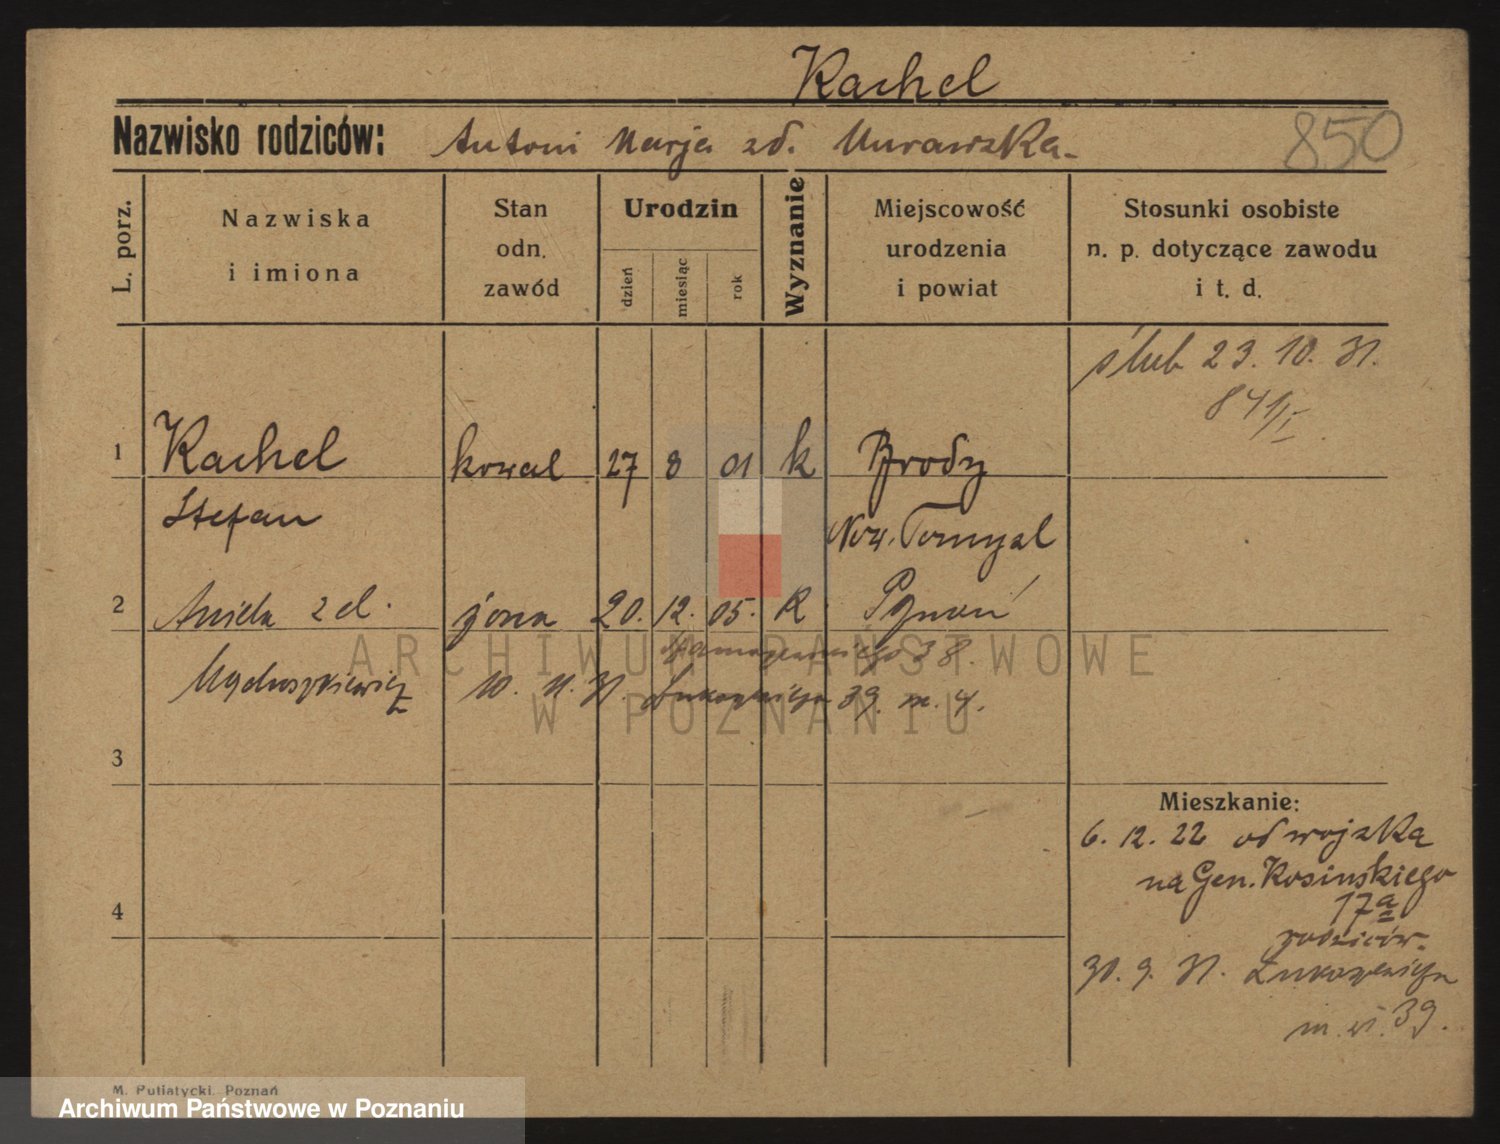 Kachel
Nazwisko rodziców: Antoni Marja zd. Murawska.
850
L. porz.
Nazwiska i imiona
Stan odn. zawód
Urodzin
dzień miesiąc rok
Wyznanie
Miejscowość urodzenia i powiat
Stosunki osobiste n. p. dotyczące zawodu i t. d.
ślub 23. 10. 31.
1 Kachel kowal 27 8 01 k Brody
Stefan Now. Tomysl
2 Aniela zd. żona 20. 12. 05. k Poznań
38.
10. 11. 31. 39. m. 4.
3
Mieszkanie:
6. 12. 22 od wojska
na Gen. Kosinskiego
17a
4
rodziców.
30. 9. 31.
39.
M. Putiatycki. Poznań
ARCHIWUM PAŃSTWOWE
W POZNANIU
Archiwum Państwowe w Poznaniu